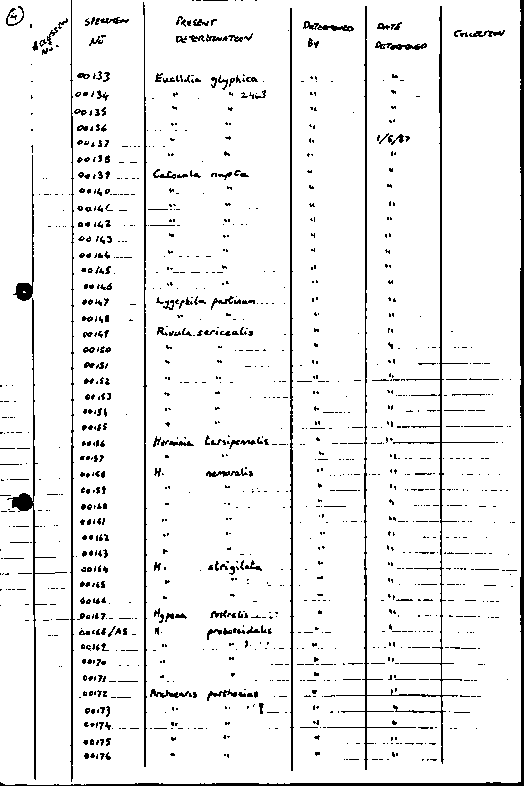 4
ACCESSION No. SPECIMEN No PRESENT DETERMINATION DETERMINED BY DATE DETERMINED COLLECTION
00133 Euclidia glyphica " "
00134 " " 2463 " "
00135 " " " "
00136 " " " "
00137 " " " 1/6/87
00138 " " " "
00139 Catocala nupta " "
00140 " " " "
00141 " " " "
00142 " " " "
00143 " " " "
00144 " " " "
00145 " " " "
00146 " " " "
00147 Lygephila pastinum " "
00148 " " " "
00149 Rivula sericealis " "
00150 " " " "
00151 " " " "
00152 " " " "
00153 " " " "
00154 " " " "
00155 " " " "
00156 Herminia tarsipennalis " "
00157 " " " "
00158 H. nemoralis " "
00159 " " " "
00160 " " " "
00161 " " " "
00162 " " " "
00163 " " " "
00164 H. strigilata " "
00165 " " " "
00166 " " " "
00167 Hypena rostralis " "
00168/AS H. proboscidalis " "
00169 " " " "
00170 " " " "
00171 " " " "
00172 Archiearis parthenias " "
00173 " " " "
00174 " " " "
00175 " " " "
00176 " " " "